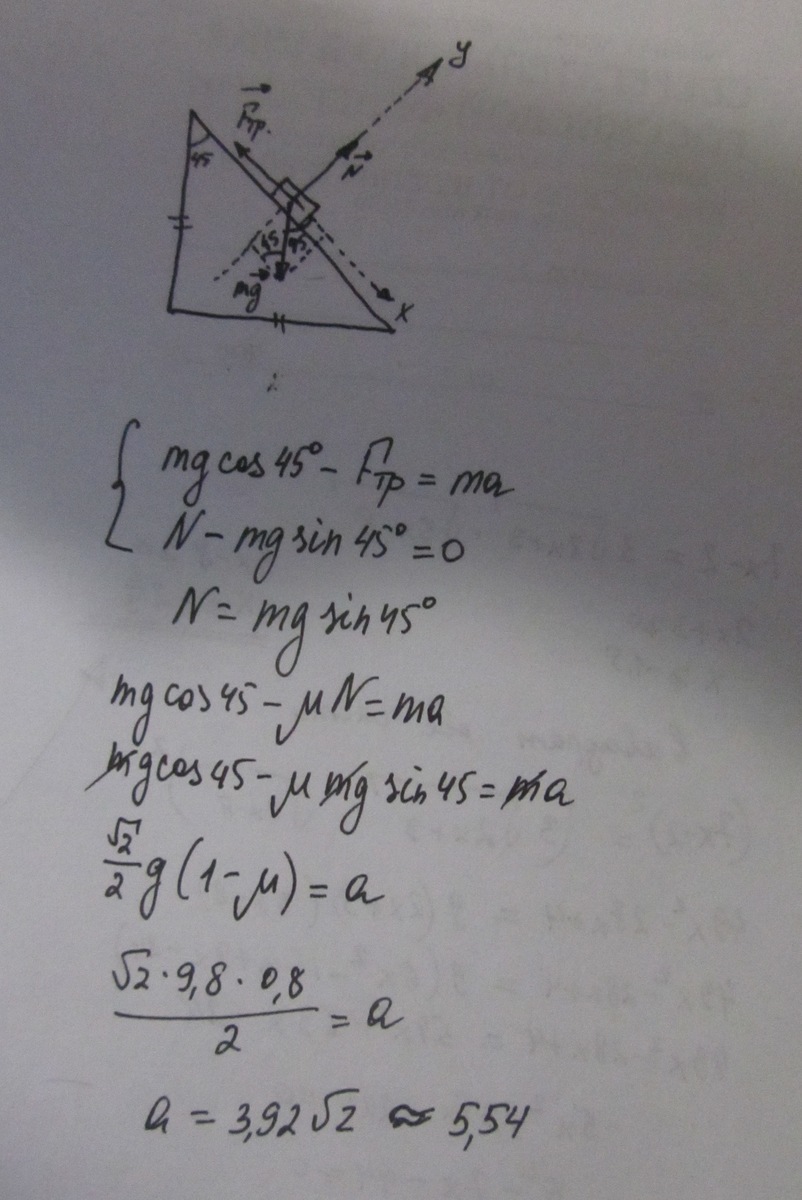 y
F⃗тр.
45
N⃗
45
45
mg⃗
x
{ mg cos 45° - Fтр = ma
N - mg sin 45° = 0
N = mg sin 45°
mg cos 45 - μN = ma
mg cos 45 - μ mg sin 45 = ma
√2/2 g (1 - μ) = a
√2 · 9,8 · 0,8 / 2 = a
a = 3,92√2 ≈ 5,54